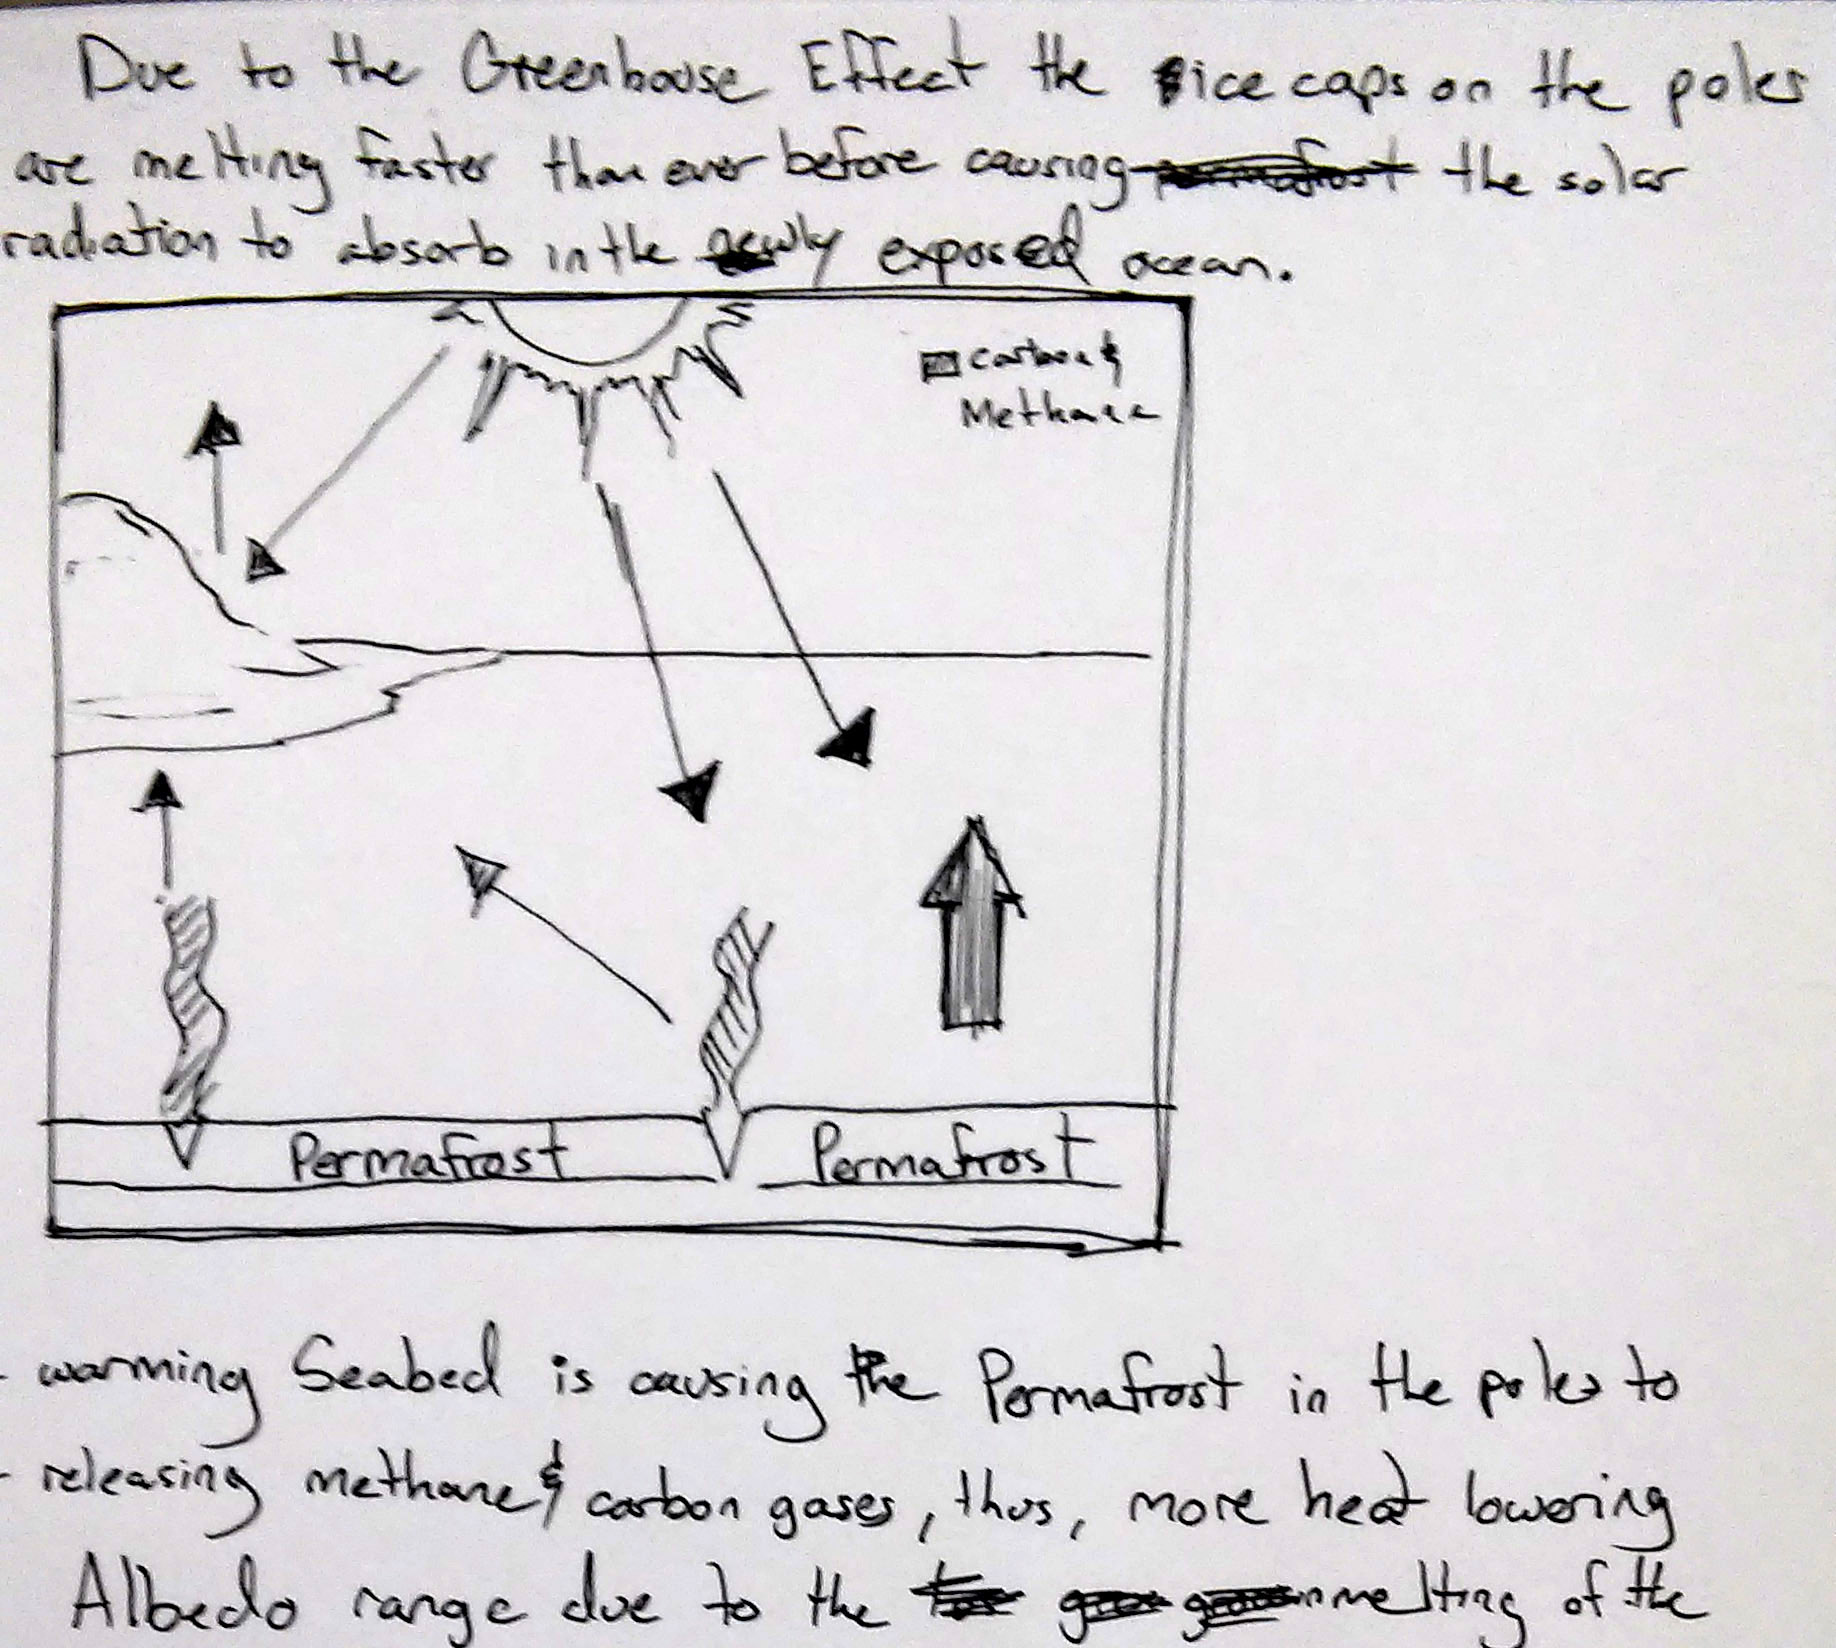 Due to the Greenhouse Effect the ice caps on the poles
are melting faster than ever before causing the solar
radiation to absorb in the newly exposed ocean.
Carbon &
Methane
Permafrost
Permafrost
- warming Seabed is causing the Permafrost in the poles to
- releasing methane & carbon gases, thus, more heat lowering
Albedo range due to the melting of the